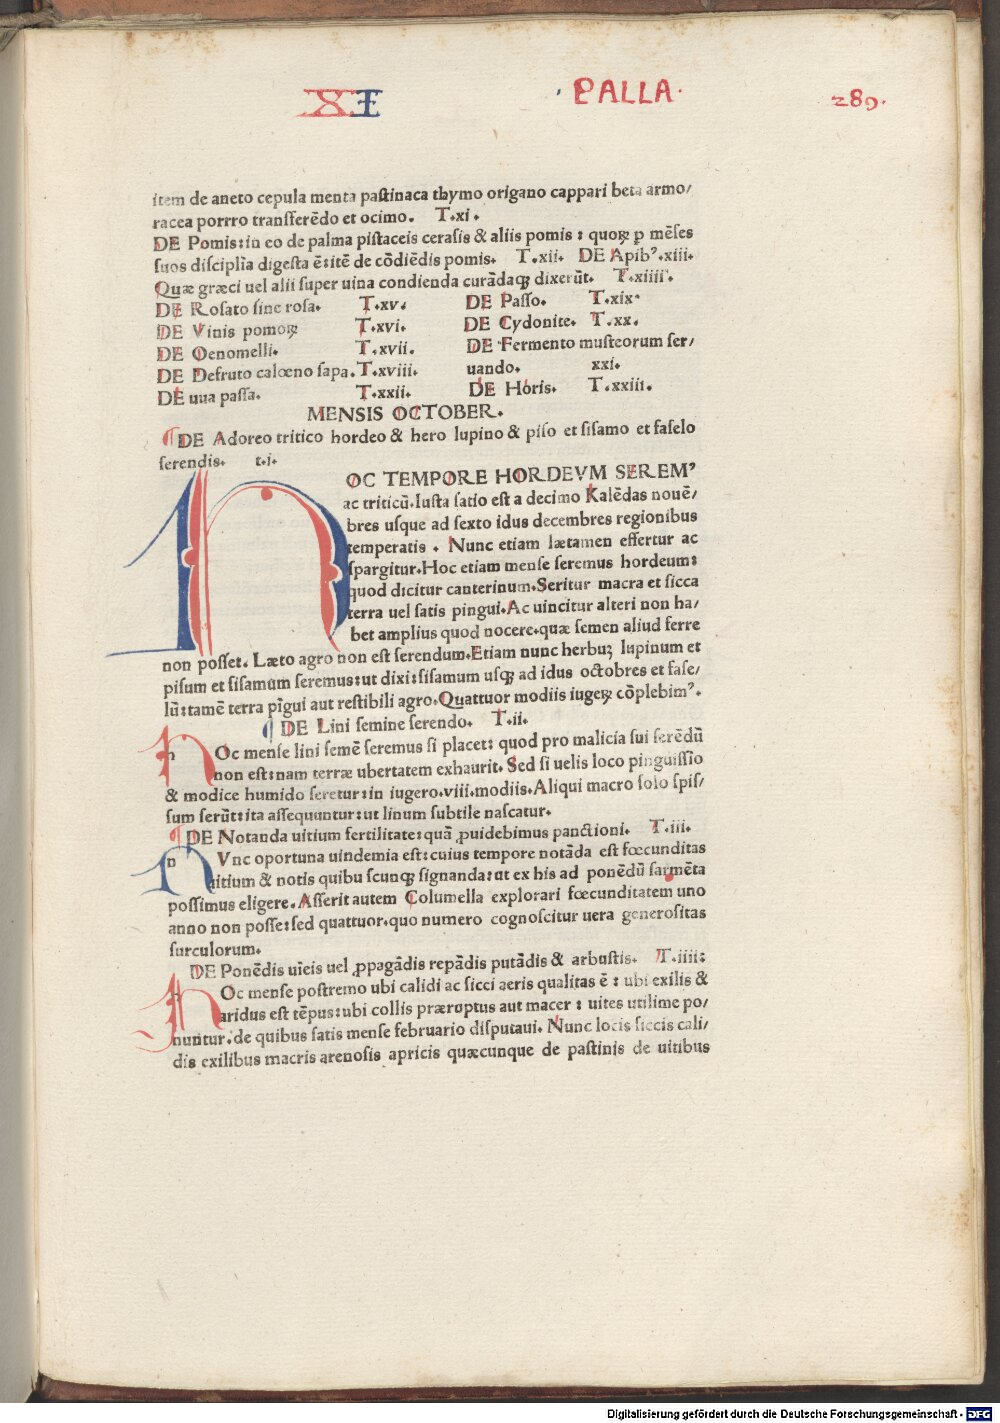 XI · PALLA · 289 ·
item de aneto cepula menta pastinaca thymo origano cappari beta armo/
racea porrro transferēdo et ocimo. T.xi.
DE Pomis:in eo de palma pistaceis cerasis & aliis pomis : quoꝝ p mēses
suos disciplīa digesta ē:itē de cōdiēdis pomis. T.xii. DE Apibꝰ.xiii.
Quæ græci uel alii super uina condienda curādaqꝫ dixerūt. T.xiiii.
DE Rosato sine rosa. T.xv. DE Passo. T.xix.
DE Vinis pomoꝝ T.xvi. DE Cydonite. T.xx.
DE Oenomelli. T.xvii. DE Fermento musteorum ser/
DE Defruto caloeno sapa. T.xviii. uando. xxi.
DE uua passa. T.xxii. DE Horis. T.xxiii.
MENSIS OCTOBER.
¶DE Adoreo tritico hordeo & hero lupino & piso et sisamo et faselo
serendis. t.i.
HOC TEMPORE HORDEVM SEREMꝰ
ac triticū.Iusta satio est a decimo Kalēdas nouē/
bres usque ad sexto idus decembres regionibus
temperatis . Nunc etiam lætamen effertur ac
spargitur.Hoc etiam mense seremus hordeum:
quod dicitur canterinum.Seritur macra et sicca
terra uel satis pingui.Ac uincitur alteri non ha/
bet amplius quod nocere.quæ semen aliud ferre
non posset. Læto agro non est serendum.Etiam nunc herbuꝫ lupinum et
pisum et sisamum seremus:ut dixi:sisamum usqꝫ ad idus octobres et fase/
lū:tamē terra pīgui aut restibili agro.Quattuor modiis iugeꝝ cōplebimꝰ.
¶DE Lini semine serendo. T.ii.
hOc mense lini semē seremus si placet: quod pro malicia sui serēdū
non est:nam terræ ubertatem exhaurit. Sed si uelis loco pinguissio
& modice humido seretur:in iugero.viii.modiis.Aliqui macro solo spis/
sum serūt:ita assequuntur:ut linum subtile nascatur.
¶DE Notanda uitium fertilitate:quā ꝓuidebimus panctioni. T.iii.
nVnc oportuna uindemia est:cuius tempore notāda est fœcunditas
uitium & notis quibu scunqꝫ signanda:ut ex his ad ponēdū sarmēta
possimus eligere.Asserit autem Columella explorari fœcunditatem uno
anno non posse:sed quattuor.quo numero cognoscitur uera generositas
surculorum.
DE Ponēdis uīeis uel ꝓpagādis repādis putādis & arbustis. T.iiii:
hOc mense postremo ubi calidi ac sicci aeris qualitas ē : ubi exilis &
aridus est tēpus:ubi collis præruptus aut macer : uites utilime po/
nuntur.de quibus satis mense februario disputaui. Nunc locis siccis cali/
dis exilibus macris arenosis apricis quæcunque de pastinis de uitibus
Digitalisierung gefördert durch die Deutsche Forschungsgemeinschaft - DFG